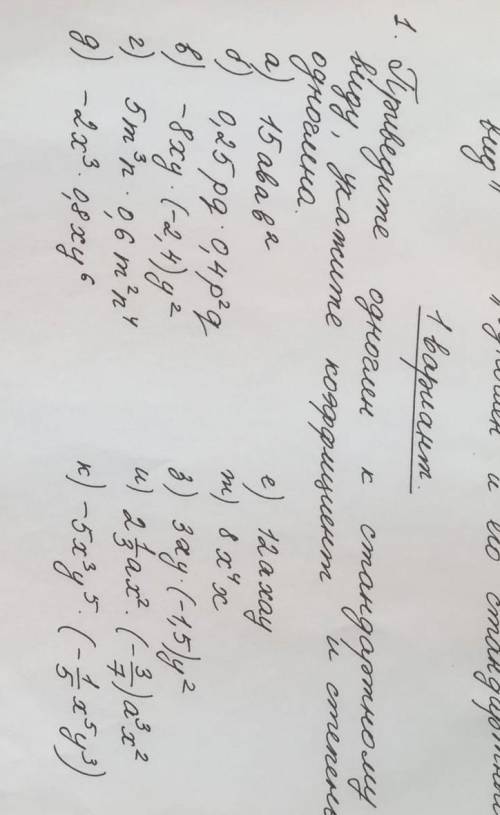 вид
и его стандартный
1 вариант.
1. Приведите одночлен к стандартному
виду, укажите коэффициент и степень
одночлена.
а) 15авав²
б) 0,25pq · 0,4p²q
в) -8xy · (-2,4)y²
г) 5m³n · 0,6m²n⁴
д) -2x³ · 0,8xy⁶
е) 12ахау
ж) 8x⁴x
з) 3ay · (-1,5)y²
и) 2 1/3 ax² · (-3/7)a³x²
к) -5x³y⁵ · (-1/5 x⁵y³)